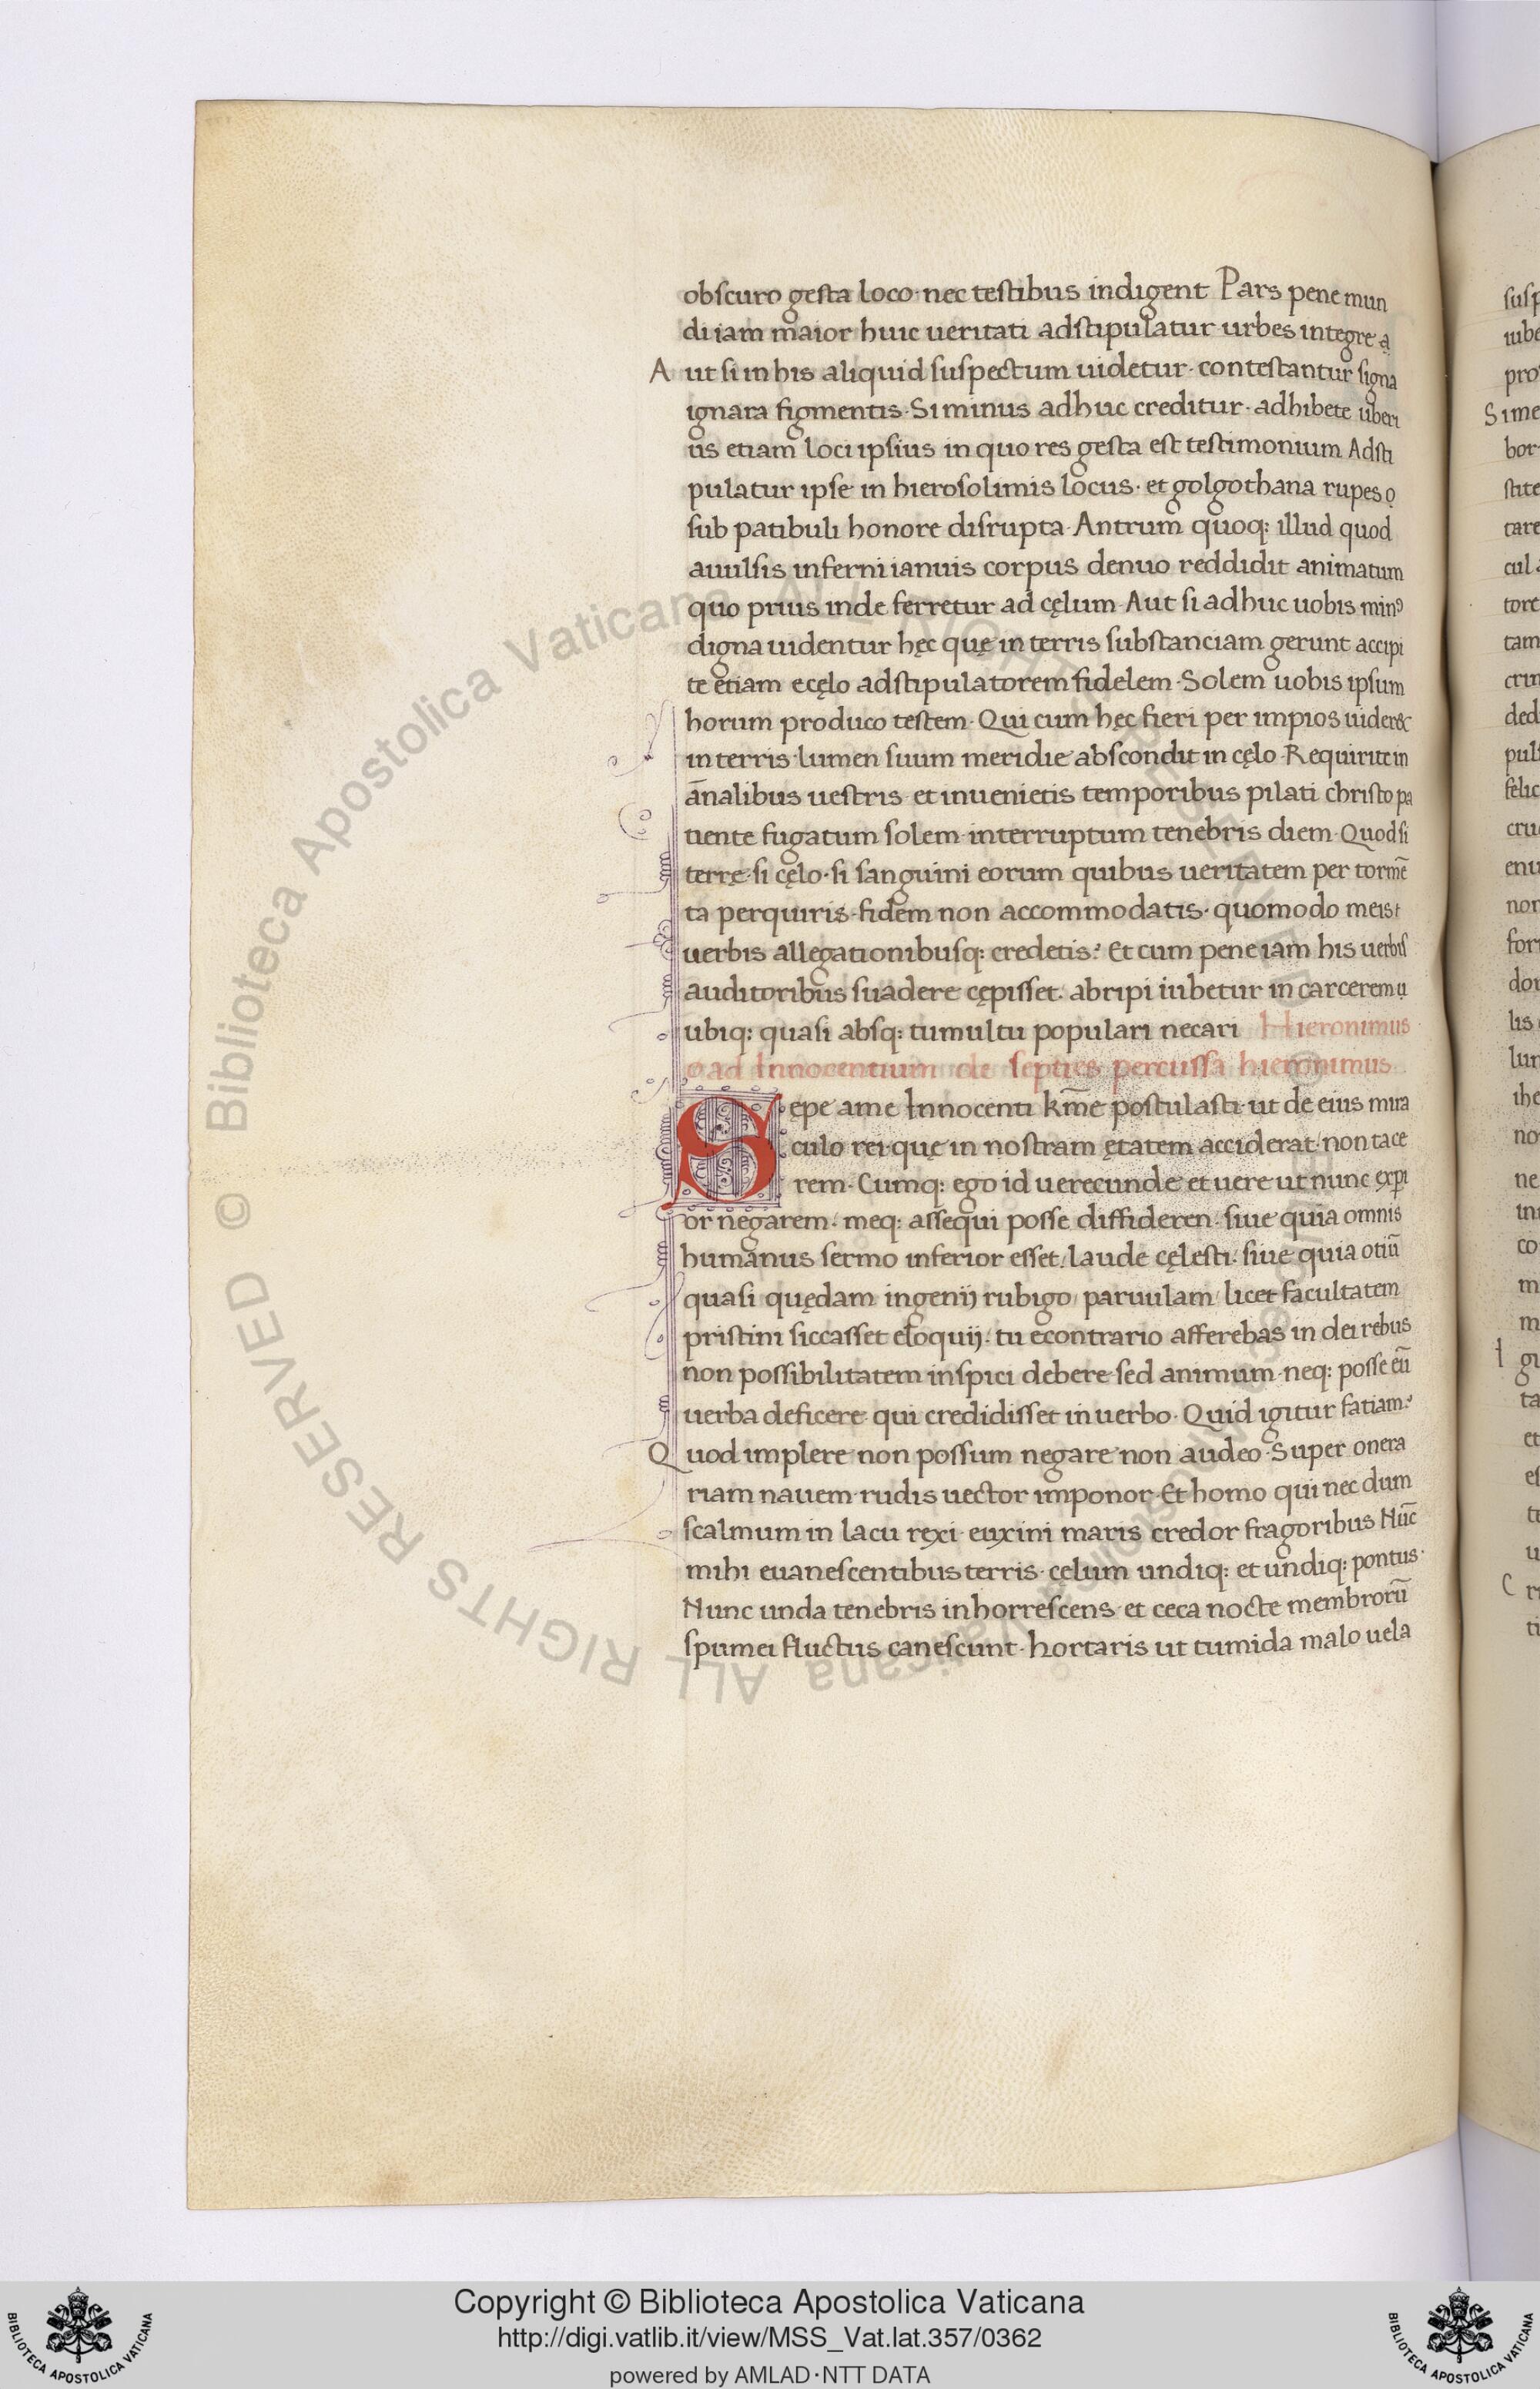 obscuro gesta loco · nec testibus indigent Pars pene mun
di iam maior huic ueritati adstipulatur urbes integre a
A ut si in his aliquid suspectum uidetur · contestantur signa
ignara figmentis · Si minus adhuc creditur · adhibete uberi
us etiam loci ipsius in quo res gesta est testimonium Adsti
pulatur ipse in hierosolimis locus · et golgothana rupes o
sub patibuli honore disrupta · Antrum quoq: illud quod
auulsis inferni ianuis corpus denuo reddidit animatum
quo prius inde ferretur ad cęlum · Aut si adhuc uobis minꝰ
digna uidentur hęc quę in terris substanciam gerunt accipi
te etiam e cęlo adstipulatorem fidelem · Solem uobis ipsum
horum produco testem · Qui cum hęc fieri per impios uider&
in terris · lumen suum meridie abscondit in cęlo · Requirite in
an̄alibus uestris · et inuenietis temporibus pilati christo pa
tiente fugatum solem · interruptum tenebris diem · Quod si
terrę · si cęlo · si sanguini eorum quibus ueritatem per tormē
ta perquiris · fidem non accommodatis · quomodo meis
uerbis allegationibusq: credetis? Et cum pene iam his uerbis
auditoribus suadere cępisset · abripi iubetur in carcerem u
ubiq: quasi absq: tumultu populari necari Hieronimus
ad Innocentium de septies percussa hieronimus
Sepe a me Innocenti km̄e postulasti · ut de eius mira
culo rei · quę in nostram ętatem acciderat · non tace
rem · Cumq: ego id uerecunde et uere ut nunc exp̱i
or negarem · meq: assequi posse diffideren · siue quia omnis
humanus sermo inferior esset / laude cęlesti · siue quia otiū
quasi quędam ingenij rubigo / paruulam / licet facultatem
pristini siccasset eloquij · tu econtrario afferebas in dei rebus
non possibilitatem inspici debere sed animum · neq: posse eū
uerba deficere · qui credidisset in uerbo · Quid igitur fatiam?
Q uod implere non possum negare non audeo · Super onera
riam nauem · rudis uector imponor · Et homo qui nec dum
scalmum in lacu rexi · euxini maris credor fragoribus Nūc
mihi euanescentibus terris · cęlum undiq: et undiq: pontus ·
Nunc unda tenebris inhorrescens · et ceca nocte membrorū
spumei fluctus canescunt · hortaris ut tumida malo uela
© Biblioteca Apostolica Vaticana ALL RIGHTS RESERVED © Biblioteca Apostolica Vaticana ALL RIGHTS RESERVED
Copyright © Biblioteca Apostolica Vaticana
http://digi.vatlib.it/view/MSS_Vat.lat.357/0362
powered by AMLAD·NTT DATA
BIBLIOTECA APOSTOLICA VATICANA
BIBLIOTECA APOSTOLICA VATICANA